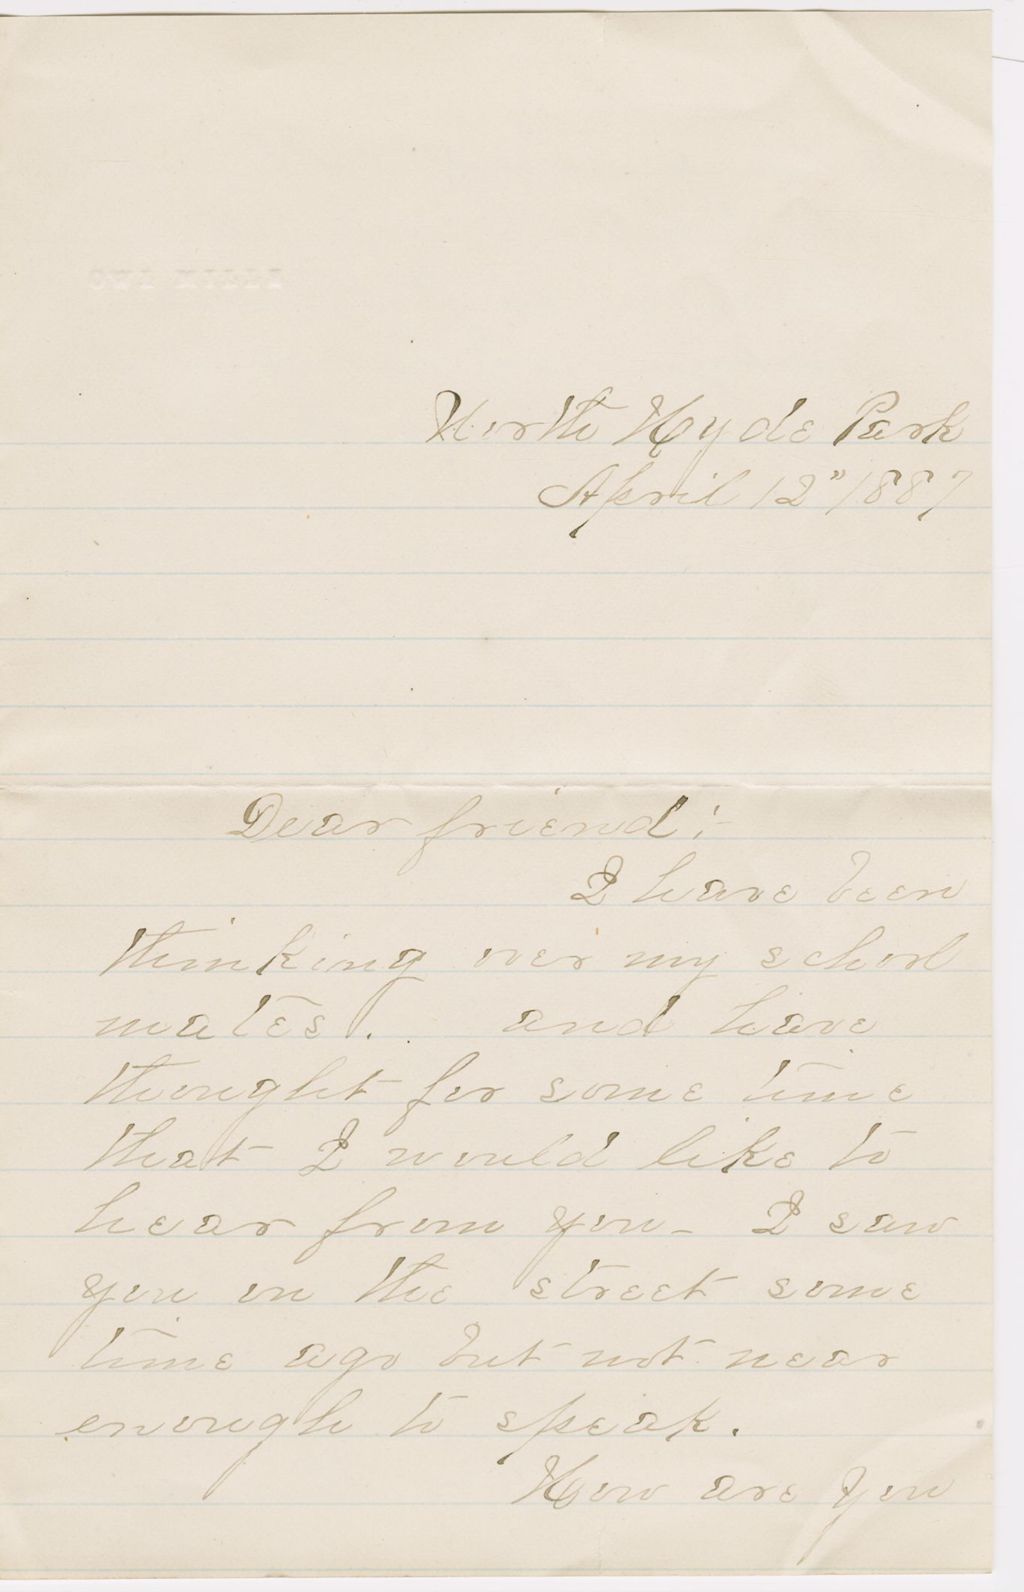 North Hyde Park
April 12" 1887
Dear friend:-
I have been
thinking over my school
mates. and have
thought for some time
that I would like to
hear from you- I saw
you on the street some
time ago but not near
enough to speak.
How are you